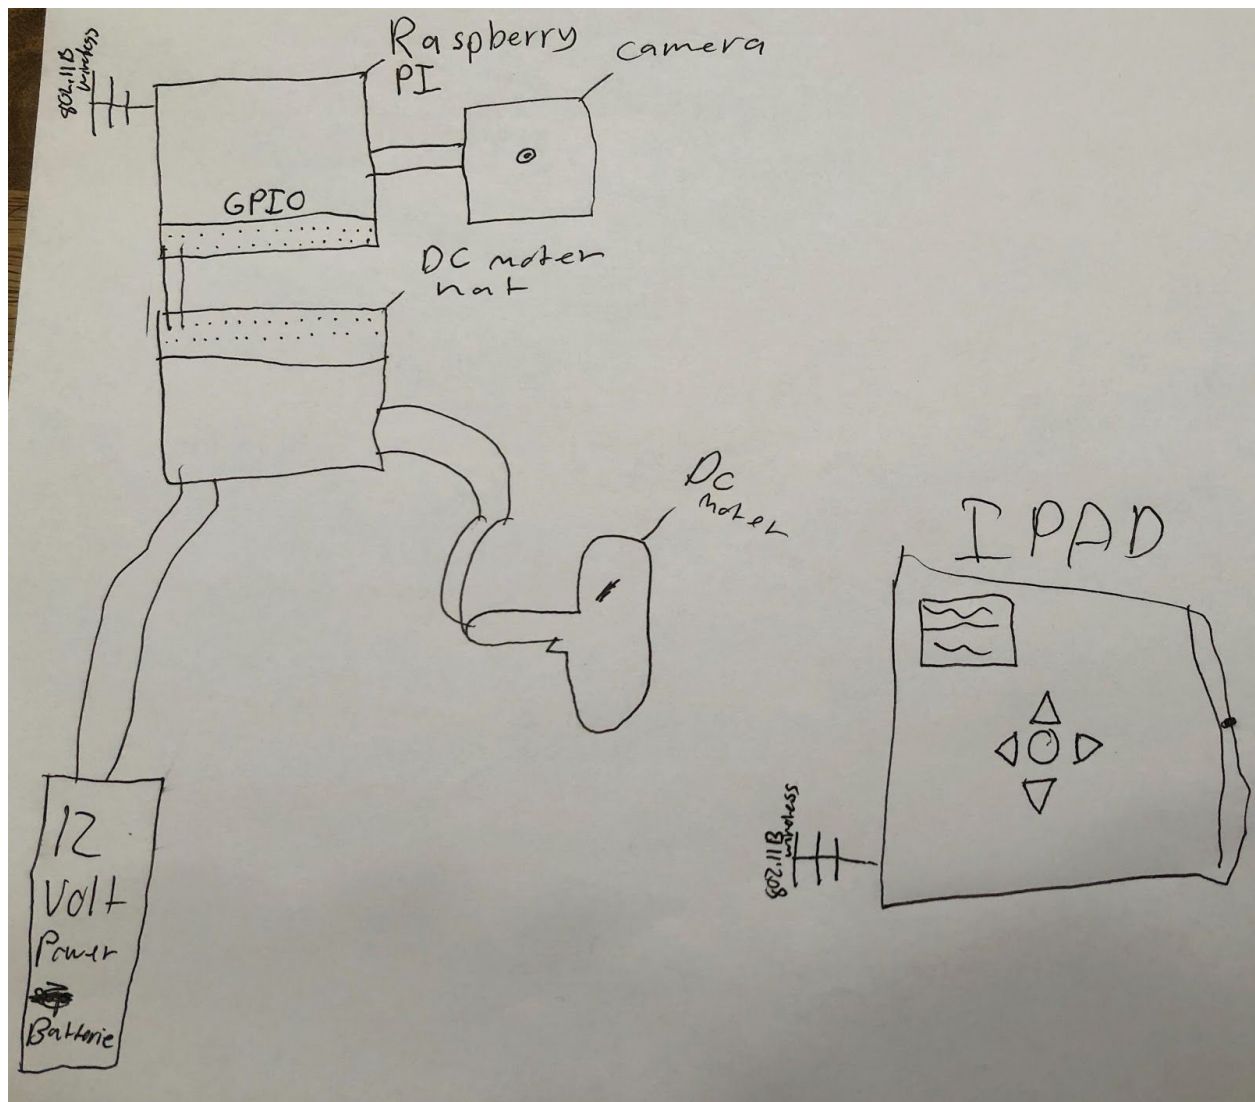 802.11B
wireless
Raspberry
PI
camera
GPIO
DC moter
hat
DC
moter
I PAD
802.11B
wireless
12
Volt
Power
Batterie